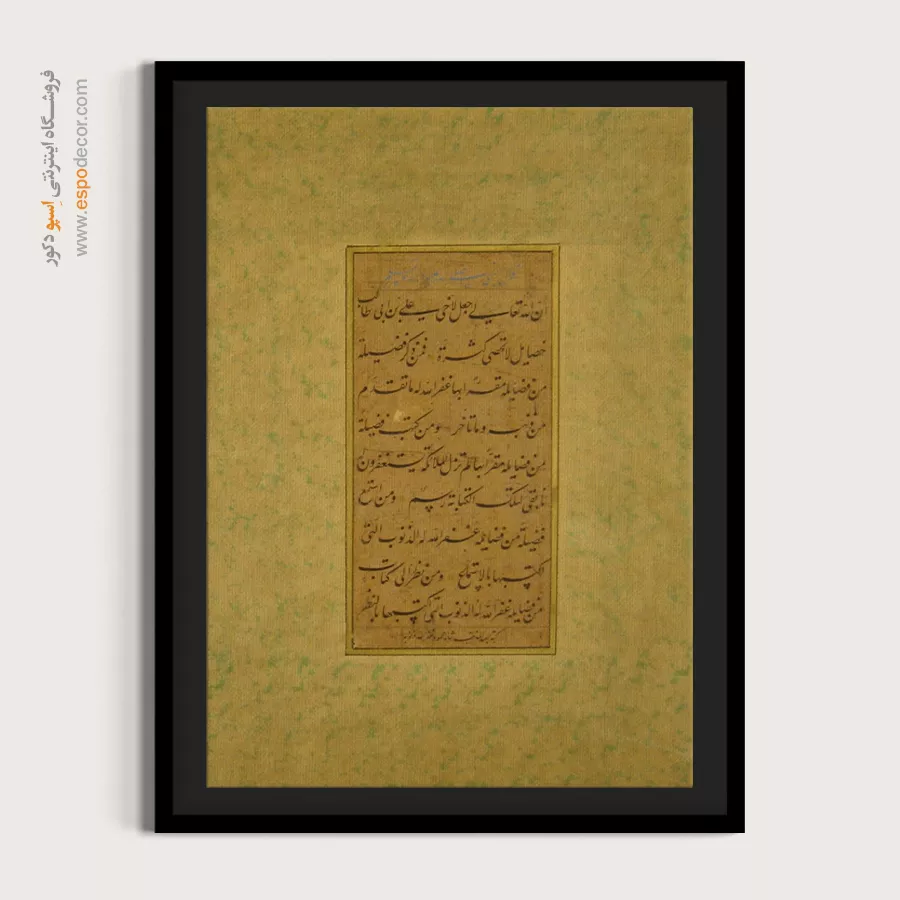 فروشگاه اینترنتی اِسپو دکور
www.espodecor.com
ان الله تعالی جعل لاخی علی بن ابی طالب
فضایل لا تحصی کثرة فمن ذکر فضیلة
من فضایله مقرّا بها غفر الله له ما تقدّم
من ذنبه و ما تأخر و من کتب فضیلة
من فضایله مقرا بها لم تزل الملائکة یستغفرون له
ما بقی لتلک الکتابة رسم و من استمع
فضیلة من فضایله غفر الله له الذنوب التی
اکتسبها بالاستماع و من نظر الی کتاب
من فضایله غفر الله له الذنوب التی اکتسبها بالنظر